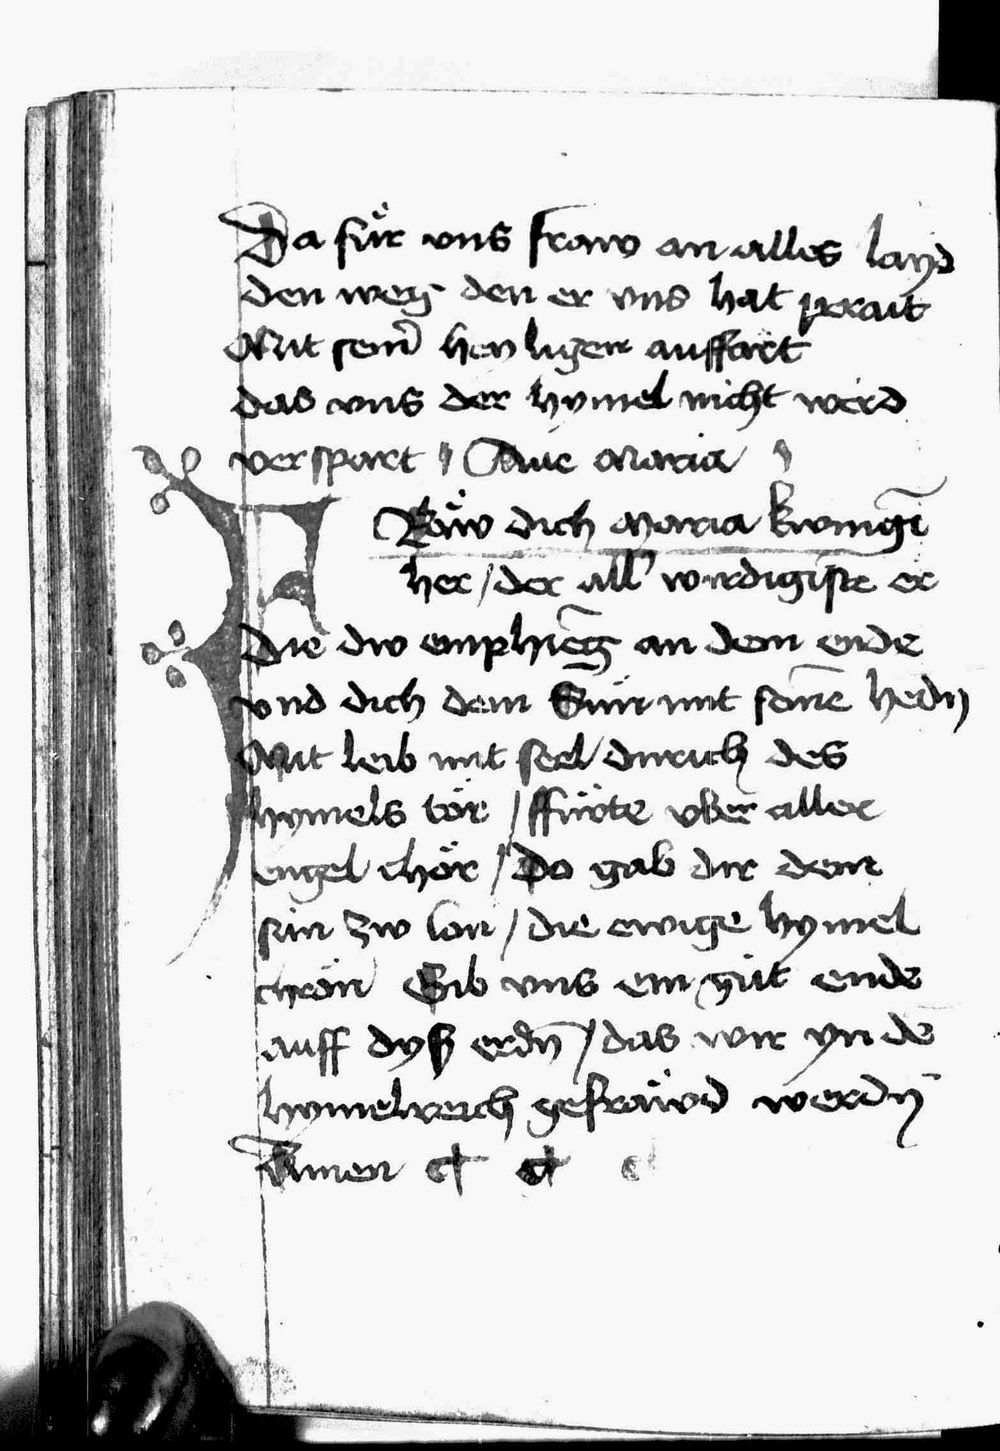 Da für vns fraw an alles layd
den weg den er vns hat perait
Mit sein̄ heyligen auffart
das vns der hymel nicht werd
verspart Aue Maria
FRäw dich Maria kwnigī
her / der all' wirdigiste er
Die dw emphīeg an dem erde
vnd dich dein Sun mit
Mit leib mit seel durich des
hymels tör / ffuöte vber aller
engel chör / Do gab dir dein
sun zw lon / die ewige hymel
chron Gib vns ein güt ende
auff dyß erdn̄ / das wir yn dē
hymelreich gefräwd werdn̄
Amen